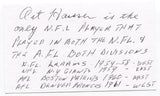 Art Hauser is the
only N.F.L. player that
played in both the N.F.L. &
the A.F.L. both divisions
N.F.L. L.A. RAMS 1954-57 WEST
NFL N.Y. GIANTS 1959 EAST
AFL BOSTON PATRIOTS 1960 - EAST
AFL DENVER BRONCOS 1961 - WEST